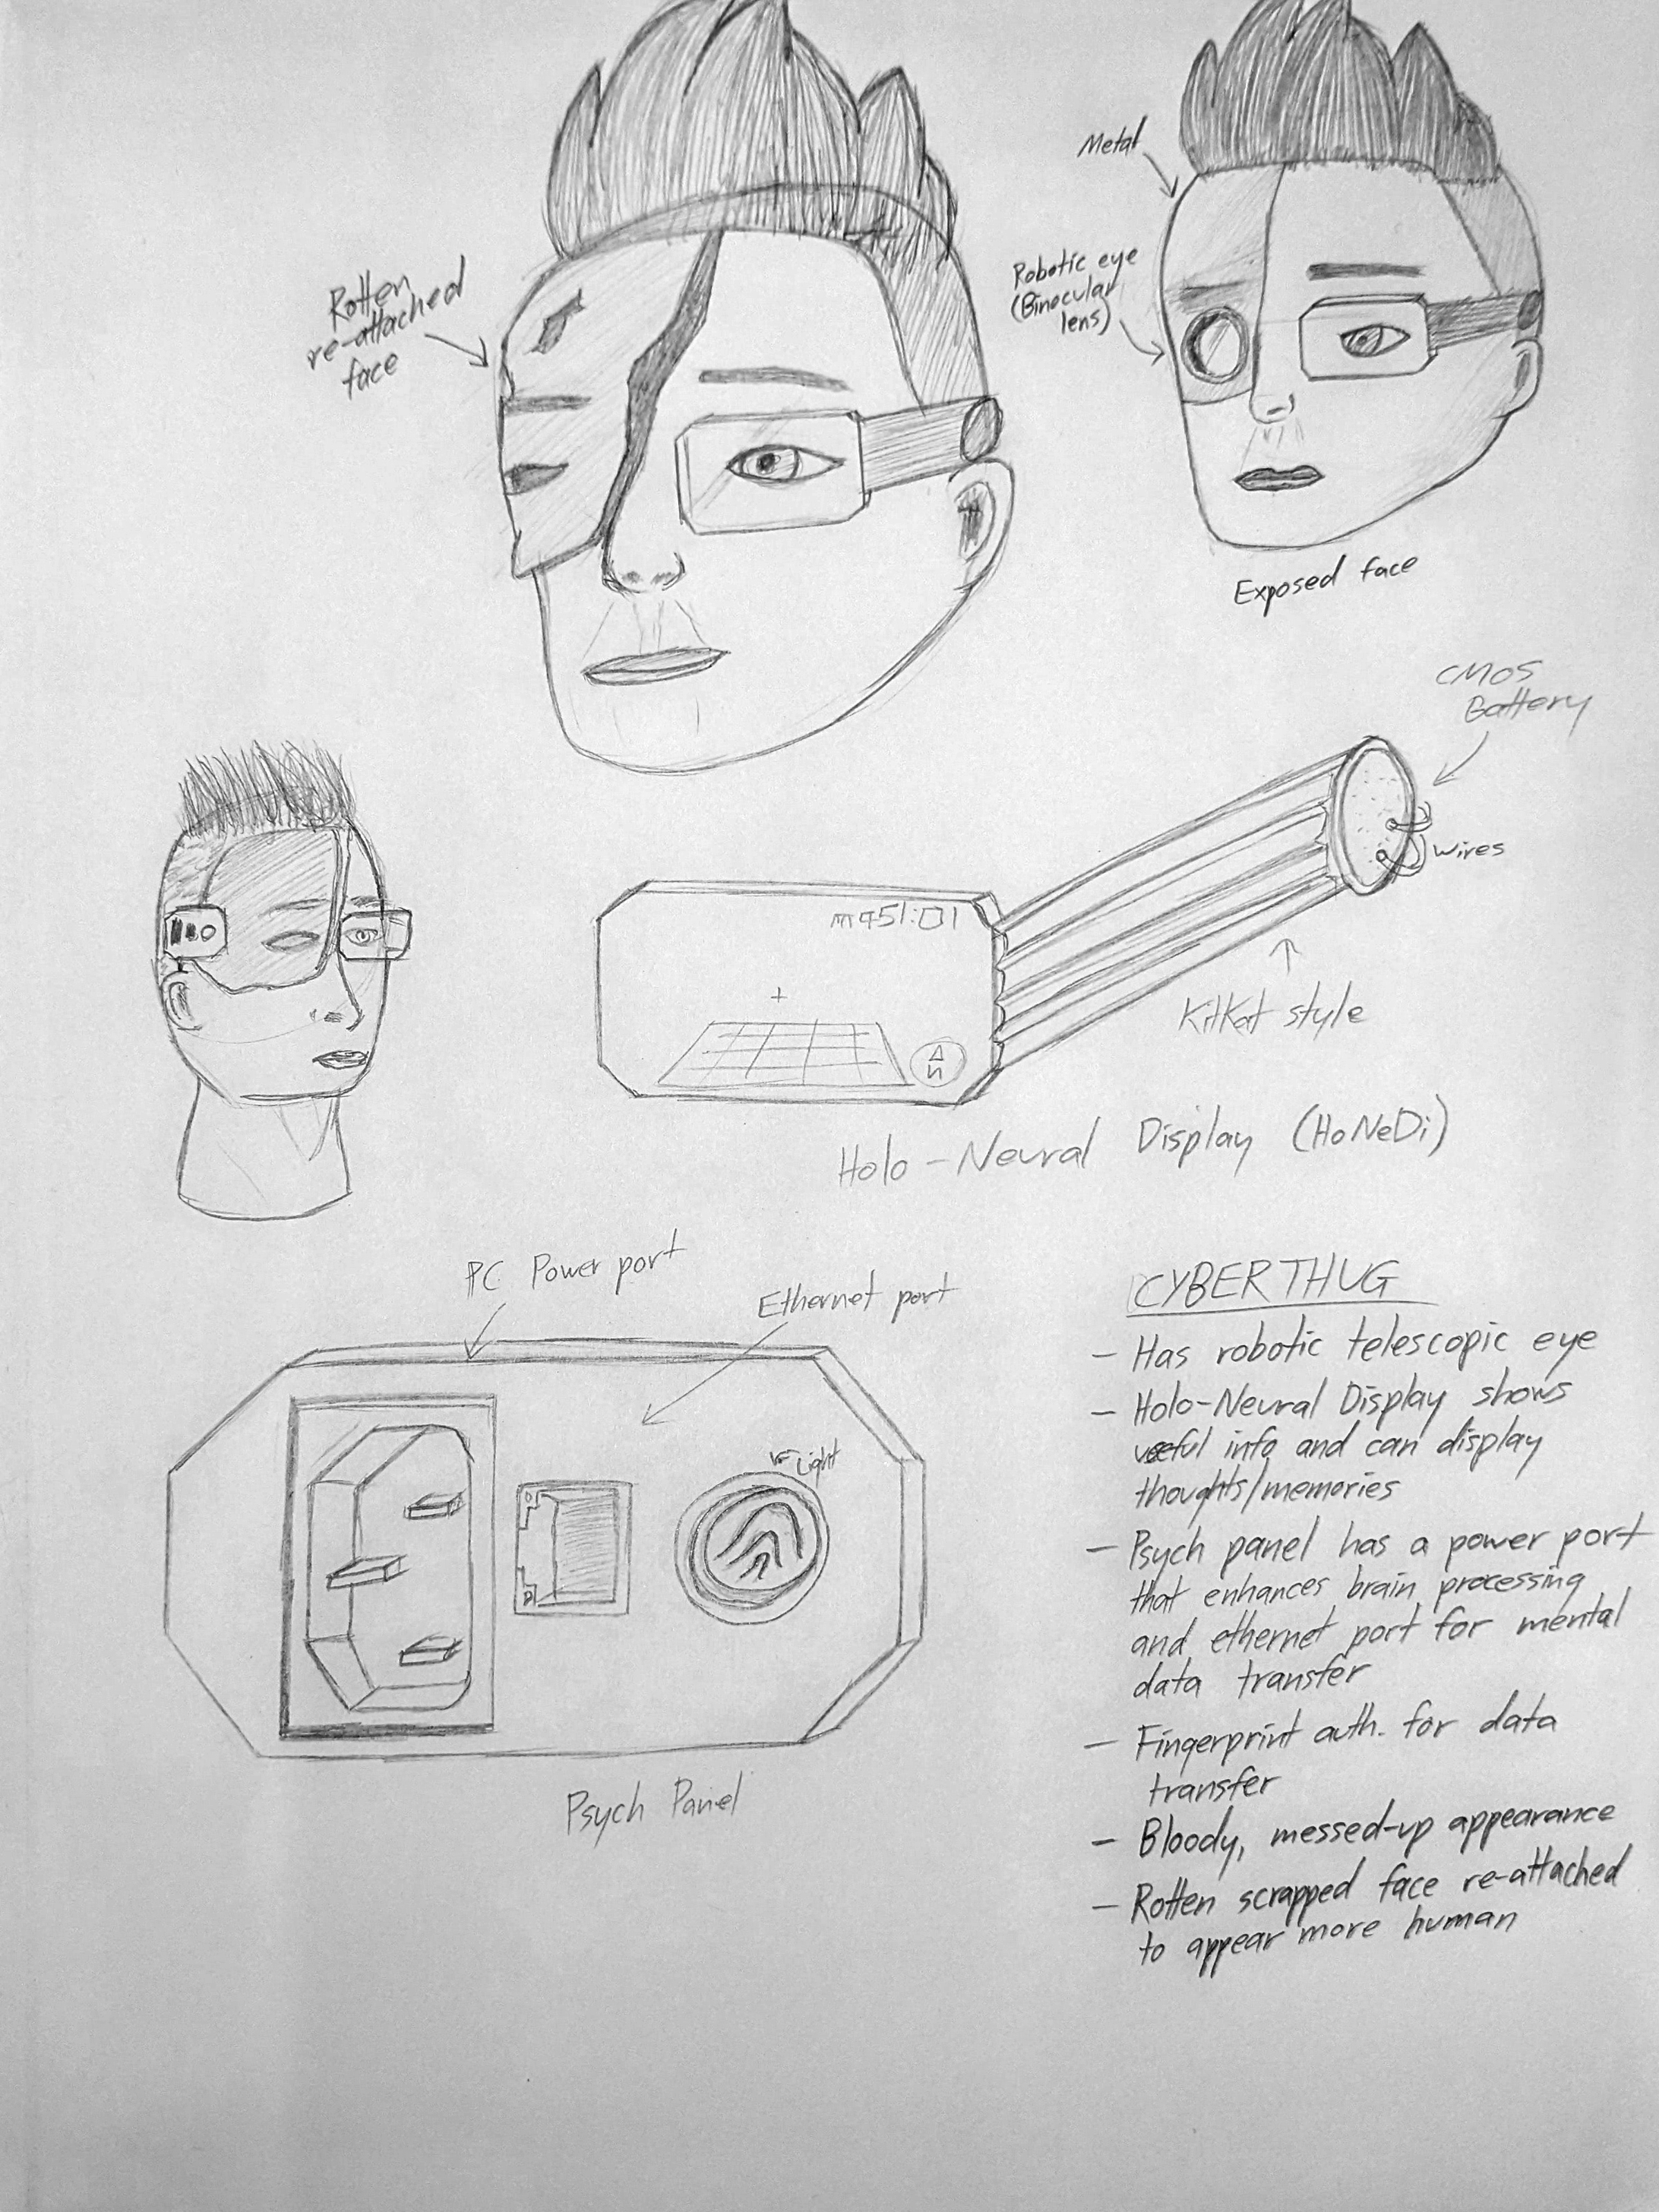 Metal
Robotic eye
(Binocular
lens)
Rotten
re-attached
face
Exposed face
CMOS
Battery
wires
10:12pm
N
KitKat style
Holo-Neural Display (HoNeDi)
PC Power port
Ethernet port
Light
Psych Panel
CYBERTHUG
- Has robotic telescopic eye
- Holo-Neural Display shows
useful info and can display
thoughts/memories
- Psych panel has a power port
that enhances brain processing
and ethernet port for mental
data transfer
- Fingerprint auth. for data
transfer
- Bloody, messed-up appearance
- Rotten scrapped face re-attached
to appear more human